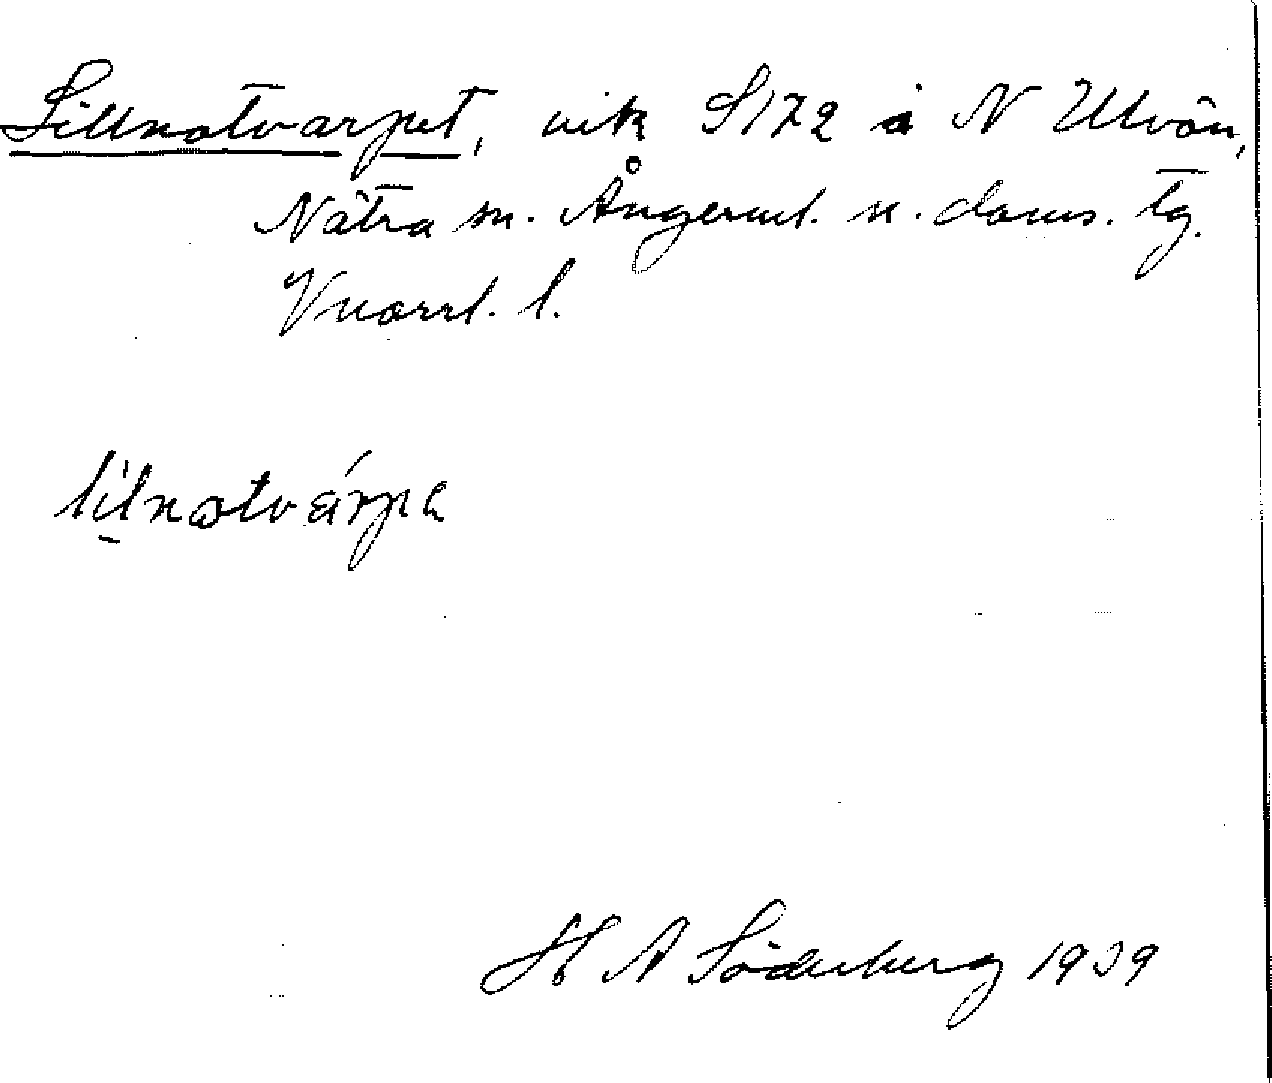 Sillnotvarpet, vik S172 å N Ulvön,
Nätra sn. Ångerml. n. doms. tg.
Vnorrl. l.
silnotvárpe
H A Söderberg 1939